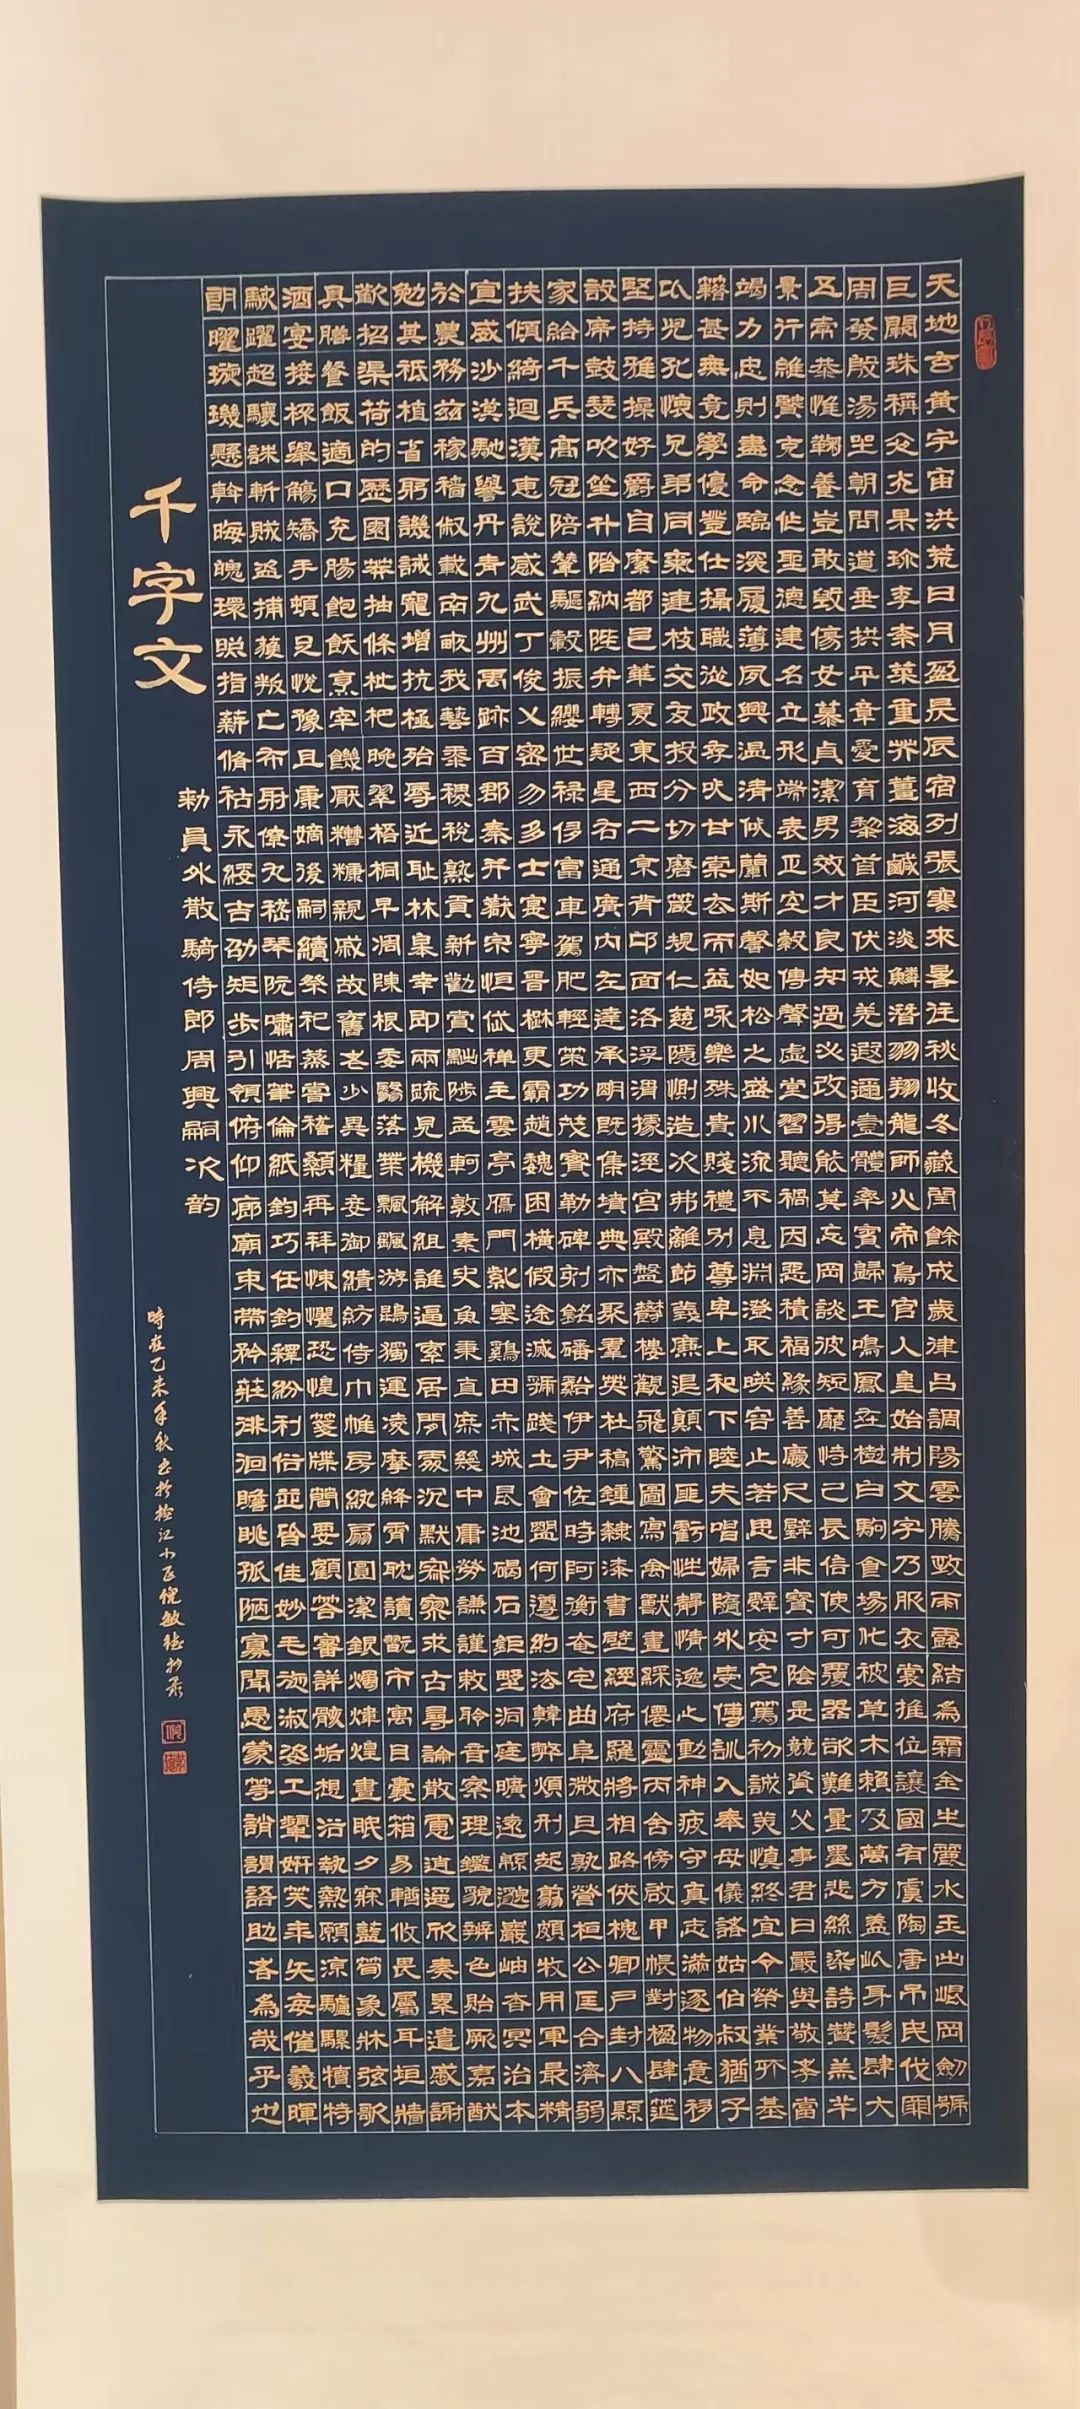 天地玄黃宇宙洪荒日月盈昃辰宿列張寒來暑往秋收冬藏閏餘成歲律呂調陽雲騰致雨露結為霜金生麗水玉出崐岡劍號
巨闕珠稱夜光果珍李柰菜重芥薑海鹹河淡鱗潛羽翔龍師火帝鳥官人皇始制文字乃服衣裳推位讓國有虞陶唐吊民伐罪
周發殷湯坐朝問道垂拱平章愛育黎首臣伏戎羌遐邇壹體率賓歸王鳴鳳在樹白駒食場化被草木賴及萬方蓋此身髮肆大
五常恭惟鞠養豈敢毀傷女慕貞潔男效才良知過必改得能莫忘罔談彼短靡恃己長信使可覆器欲難量墨悲絲染詩贊羔羊
景行維賢克念作聖德建名立形端表正空穀傳聲虛堂習聽禍因惡積福緣善慶尺璧非寶寸陰是競資父事君曰嚴與敬孝當
竭力忠則盡命臨深履薄夙興溫清似蘭斯馨如松之盛川流不息淵澄取映容止若思言辭安定篤初誠美慎終宜令榮業所基
籍甚無竟學優登仕攝職從政存以甘棠去而益詠樂殊貴賤禮別尊卑上和下睦夫唱婦隨外受傅訓入奉母儀諸姑伯叔猶子
比兒孔懷兄弟同氣連枝交友投分切磨箴規仁慈隱惻造次弗離節義廉退顛沛匪虧性靜情逸心動神疲守真志滿逐物意移
堅持雅操好爵自縻都邑華夏東西二京背邙面洛浮渭據涇宮殿盤鬱樓觀飛驚圖寫禽獸畫綵僊靈丙舍傍啟甲帳對楹肆筵
設席鼓瑟吹笙升階納陛弁轉疑星右通廣內左達承明既集墳典亦聚羣英杜稿鍾隸漆書壁經府羅將相路俠槐卿戶封八縣
家給千兵高冠陪輦驅轂振纓世祿侈富車駕肥輕策功茂實勒碑刻銘磻谿伊尹佐時阿衡奄宅曲阜微旦孰營桓公匡合濟弱
扶傾綺迴漢惠說感武丁俊乂密勿多士寔寧晉楚更霸趙魏困橫假途滅虢踐土會盟何遵約法韓弊煩刑起翦頗牧用軍最精
宣威沙漠馳譽丹青九州禹跡百郡秦并嶽宗恒岱禪主雲亭鴈門紫塞鷄田赤城昆池碣石鉅野洞庭曠遠緜邈巖岫杳冥治本
於農務茲稼穡俶載南畝我藝黍稷稅熟貢新勸賞黜陟孟軻敦素史魚秉直庶幾中庸勞謙謹敕聆音察理鑑貌辨色貽厥嘉猷
勉其祗植省躬譏誡寵增抗極殆辱近恥林皋幸即兩疏見機解組誰逼索居閒處沉默寂寥求古尋論散慮逍遙欣奏累遣慼謝
歡招渠荷的歷園莽抽條枇杷晚翠梧桐早凋陳根委翳落葉飄颻游鵾獨運凌摩絳霄耽讀翫市寓目囊箱易輶攸畏屬耳垣牆
具膳餐飯適口充腸飽飫烹宰饑厭糟糠親戚故舊老少異糧妾御績紡侍巾帷房紈扇圓潔銀燭煒煌晝眠夕寐藍筍象牀弦歌
酒宴接杯舉觴矯手頓足悅豫且康嫡後嗣續祭祀蒸嘗稽顙再拜悚懼恐惶箋牒簡要顧答審詳骸垢想浴執熱願涼驢騾犢特
駭躍超驤誅斬賊盜捕獲叛亡布射僚丸嵇琴阮嘯恬筆倫紙鈞巧任釣釋紛利俗並皆佳妙毛施淑姿工顰妍笑年矢每催羲暉
朗曜璇璣懸斡晦魄環照指薪脩祜永綏吉劭矩步引領俯仰廊廟束帶矜莊徘徊瞻眺孤陋寡聞愚蒙等誚謂語助者焉哉乎也
千字文
勅員外散騎侍郎周興嗣次韵
時在乙未年秋書於松江小昆倪敏德抄錄